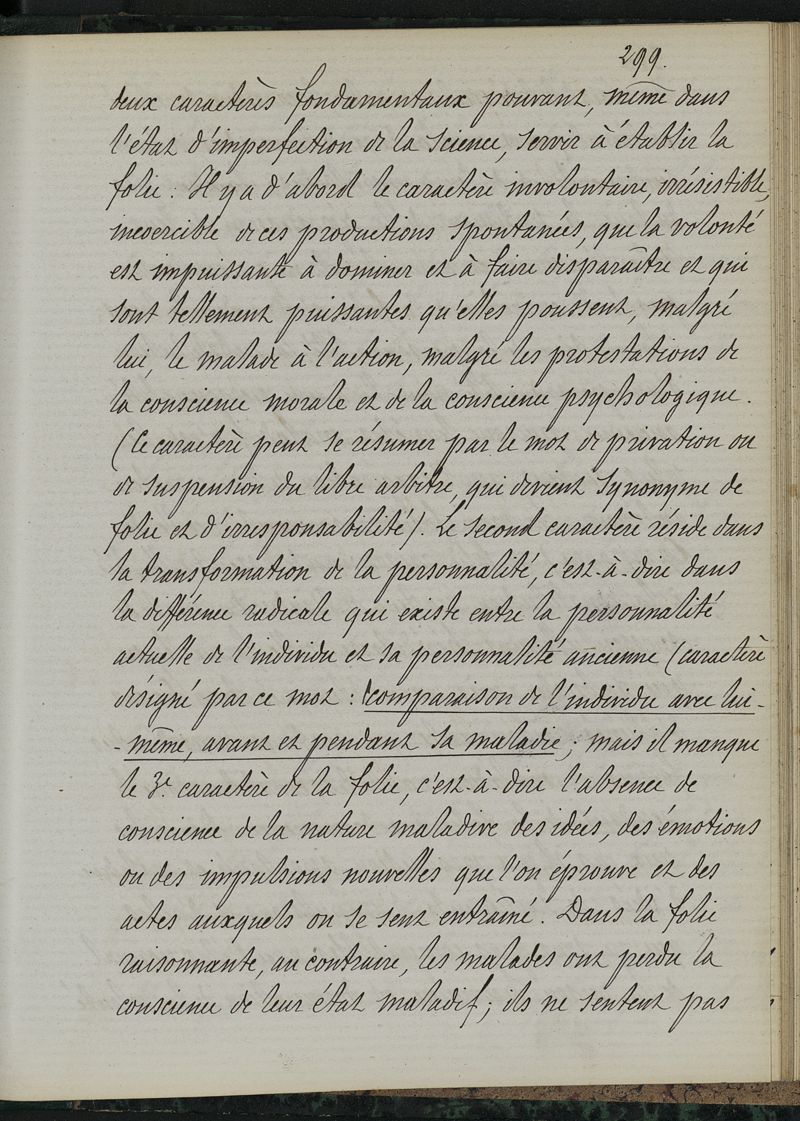 299.
deux caractères fondamentaux pouvant, même dans
l'état d'imperfection de la science, servir à établir la
folie : Il y a d'abord le caractère involontaire, irrésistible,
incoercible de ces productions spontanées, que la volonté
est impuissante à dominer et à faire disparaître et qui
sont tellement puissantes qu'elles poussent, malgré
lui, le malade à l'action, malgré les protestations de
la conscience morale et de la conscience psychologique.
(Ce caractère peut se résumer par le mot de privation ou
de suspension du libre arbitre, qui devient synonyme de
folie et d'irresponsabilité). Le second caractère réside dans
la transformation de la personnalité, c'est-à-dire dans
la différence radicale qui existe entre la personnalité
actuelle de l'individu et sa personnalité ancienne (caractère
désigné par ce mot : comparaison de l'individu avec lui-
-même, avant et pendant sa maladie ; mais il manque
le 3e caractère de la folie, c'est-à-dire l'absence de
conscience de la nature maladive des idées, des émotions
ou des impulsions nouvelles que l'on éprouve et des
actes auxquels on se sent entraîné. Dans la folie
raisonnante, au contraire, les malades ont perdu la
conscience de leur état maladif ; ils ne sentent pas